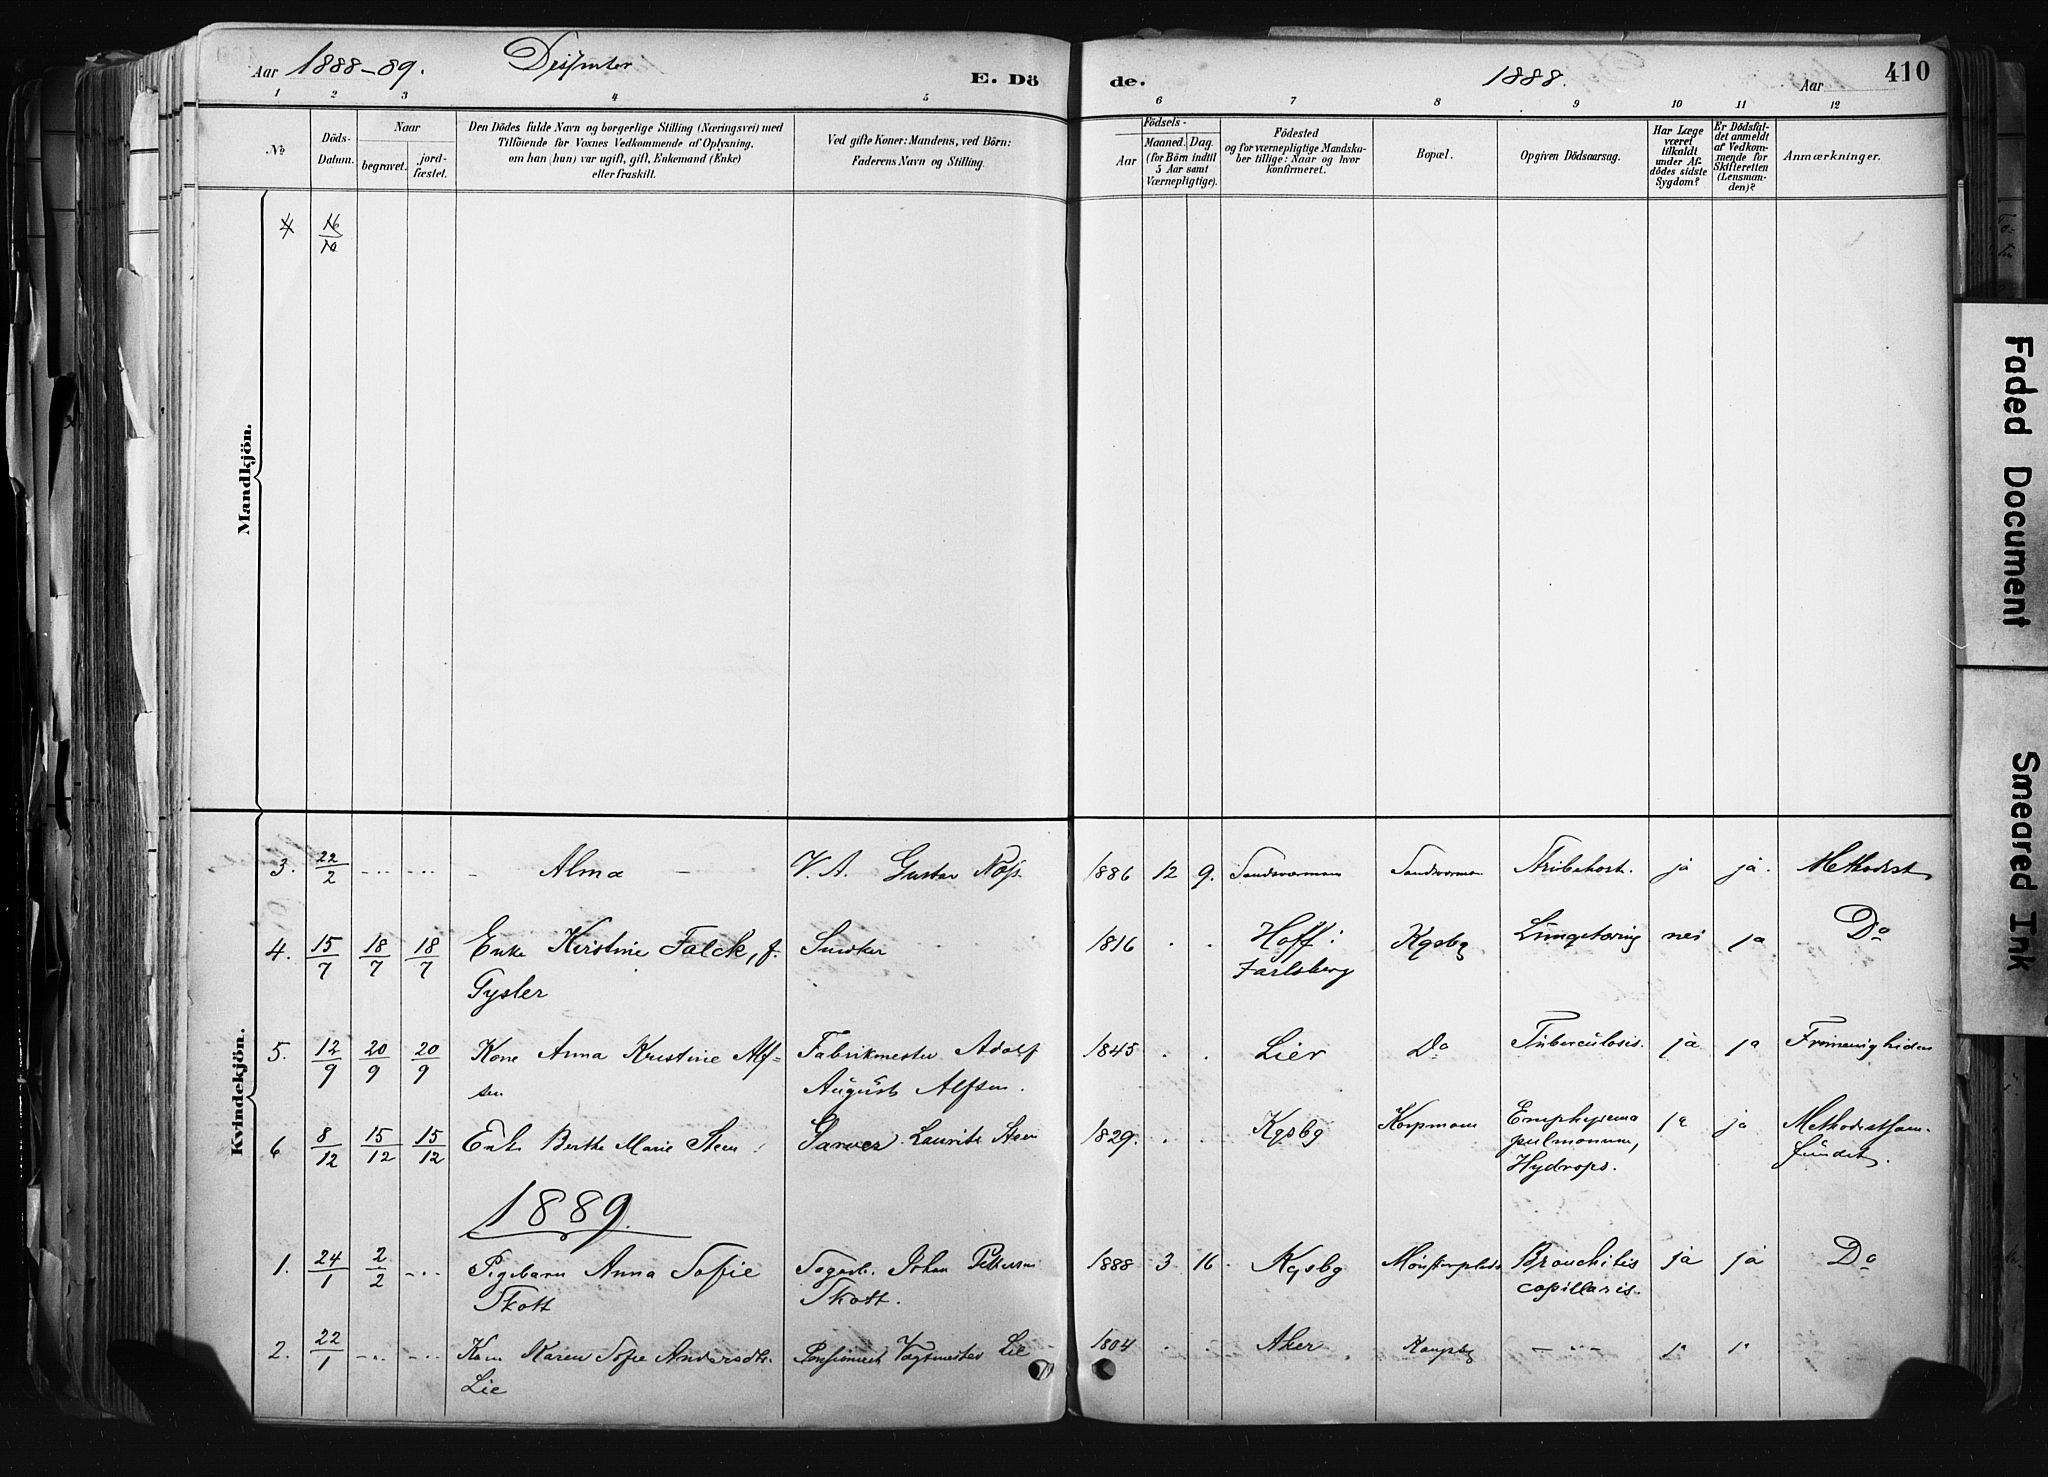 Aar 1888-89. E. Dö
de. 1888. Aar 410
1 2 3 4 5
6 7 8 9 10 11 12
No
Döds-
Datum.
Naar
begravet.
jord-
fæstet.
Den Dödes fulde Navn og borgerlige Stilling (Næringsvei) med
Tilföiende for Voxnes Vedkommende af Oplysning,
om han (hun) var ugift, gift, Enkemand (Enke)
eller fraskilt.
Ved gifte Koner: Mandens, ved Börn:
Faderens Navn og Stilling.
Födsels-
Aar
Maaned. Dag.
(for Börn indtil
5 Aar samt
Værnepligtige).
Födested
og for værnepligtige Mandska-
ber tillige: Naar og hvor
konfirmeret.
Bopæl.
Opgiven Dödsaarsag.
Har Læge
været
tilkaldt
under Af-
dödes sidste
Sygdom?
Er Dödsfal-
det anmeldt
af Vedkom-
mende for
Skifteretten
(Lensman-
den)?
Anmærkninger.
Mandkjön.
Kvindekjön.
3. 22/2 Alma V. A. Gustav 1886 12 9. ja ja. Methodist
4. 15/7 18/7 18/7 Enke Kirstine Falck, f. 1816 Hoff i Kgsbg Lungetæring nei ja Do
Gysler Jarlsberg
5. 12/9 20/9 20/9 Kone Anna Kristine Alf- Fabrikmester Adolf 1845 Lier Do Tuberculosis. ja ja
sen August Alfsen.
6 8/12 15/12 15/12 Enke Berthe Marie Steen Garver Laurits Steen 1829. Kgsbg Emphysema ja ja Methodistsam-
pulmonum, fundet.
Hydrops.
1889.
1. 24/1 2/2 Pigebarn Anna Sofie Johan Pettersen 1888 3 16. Kgsbg Bronchitis ja ja Do
Skott Skott. capillaris.
2. 22/1 Kone Karen Sofie Andersdtr. Pensioneret Vagtmester Lie 1804 Aker Kongsbg ja ja
Lie
Faded Document
Smeared Ink